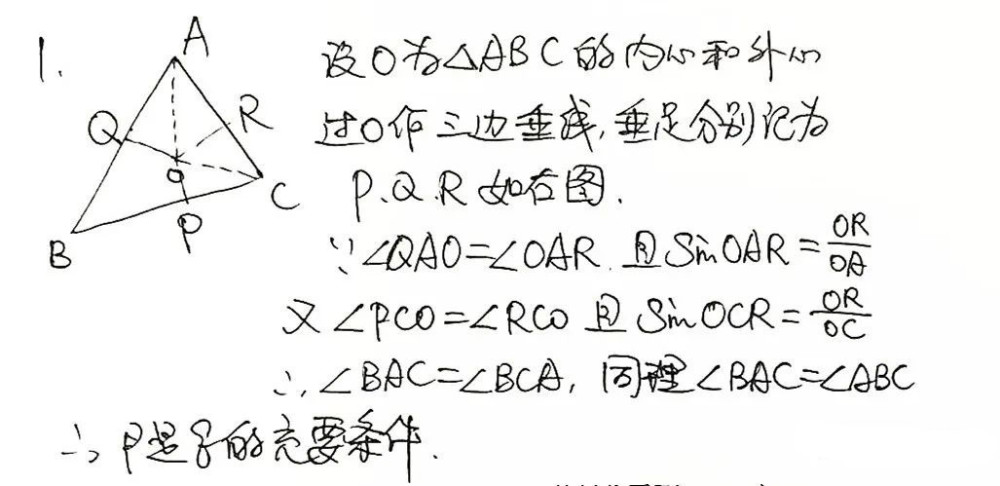 1.
A
Q
R
O
C
P
B
设O为△ABC的内心和外心
过O作三边垂线,垂足分别记为
P.Q.R 如右图.
∵∠QAO=∠OAR.且SinOAR=OR/OA
又∠PCO=∠RCO且SinOCR=OR/OC
∴∠BAC=∠BCA,同理∠BAC=∠ABC
∴P是q的充要条件.